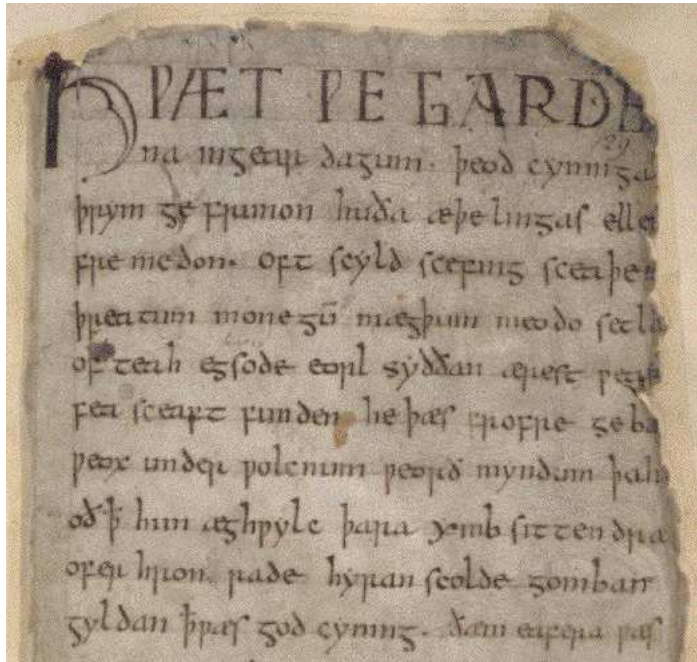 HǷÆT ǷE GARDE
na ingear dagum. þeod cyninga
þrym ge frunon huða æþelingas elle
fre medon. oft scyld scefing sceaþe
þreatum monegū mægþum meodo setla
of teah egsode eorl syððan ærest ƿear
fea sceaft funden he þæs frofre geba
ƿeox under ƿolcnum ƿeorð myndum þah
oð ꝥ him æghƿylc þara ymb sittendra
ofer hron rade hyran scolde gomban
gyldan ꝥ ƿæs god cyning. ðam eafera ƿæs
129